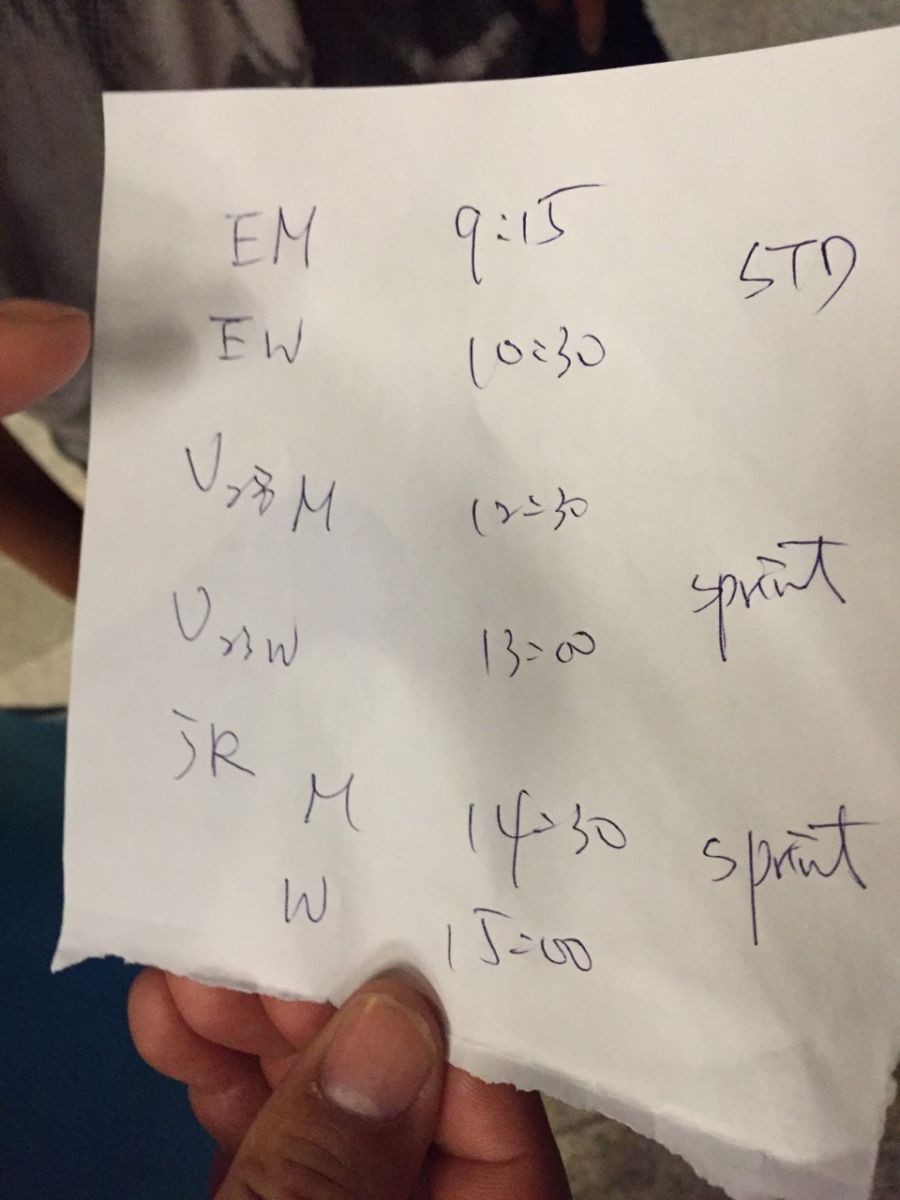 EM 9:15 STD
EW 10:30
U23 M 12:30
sprint
U23 W 13:00
JR
M 14:30 sprint
W 15:00